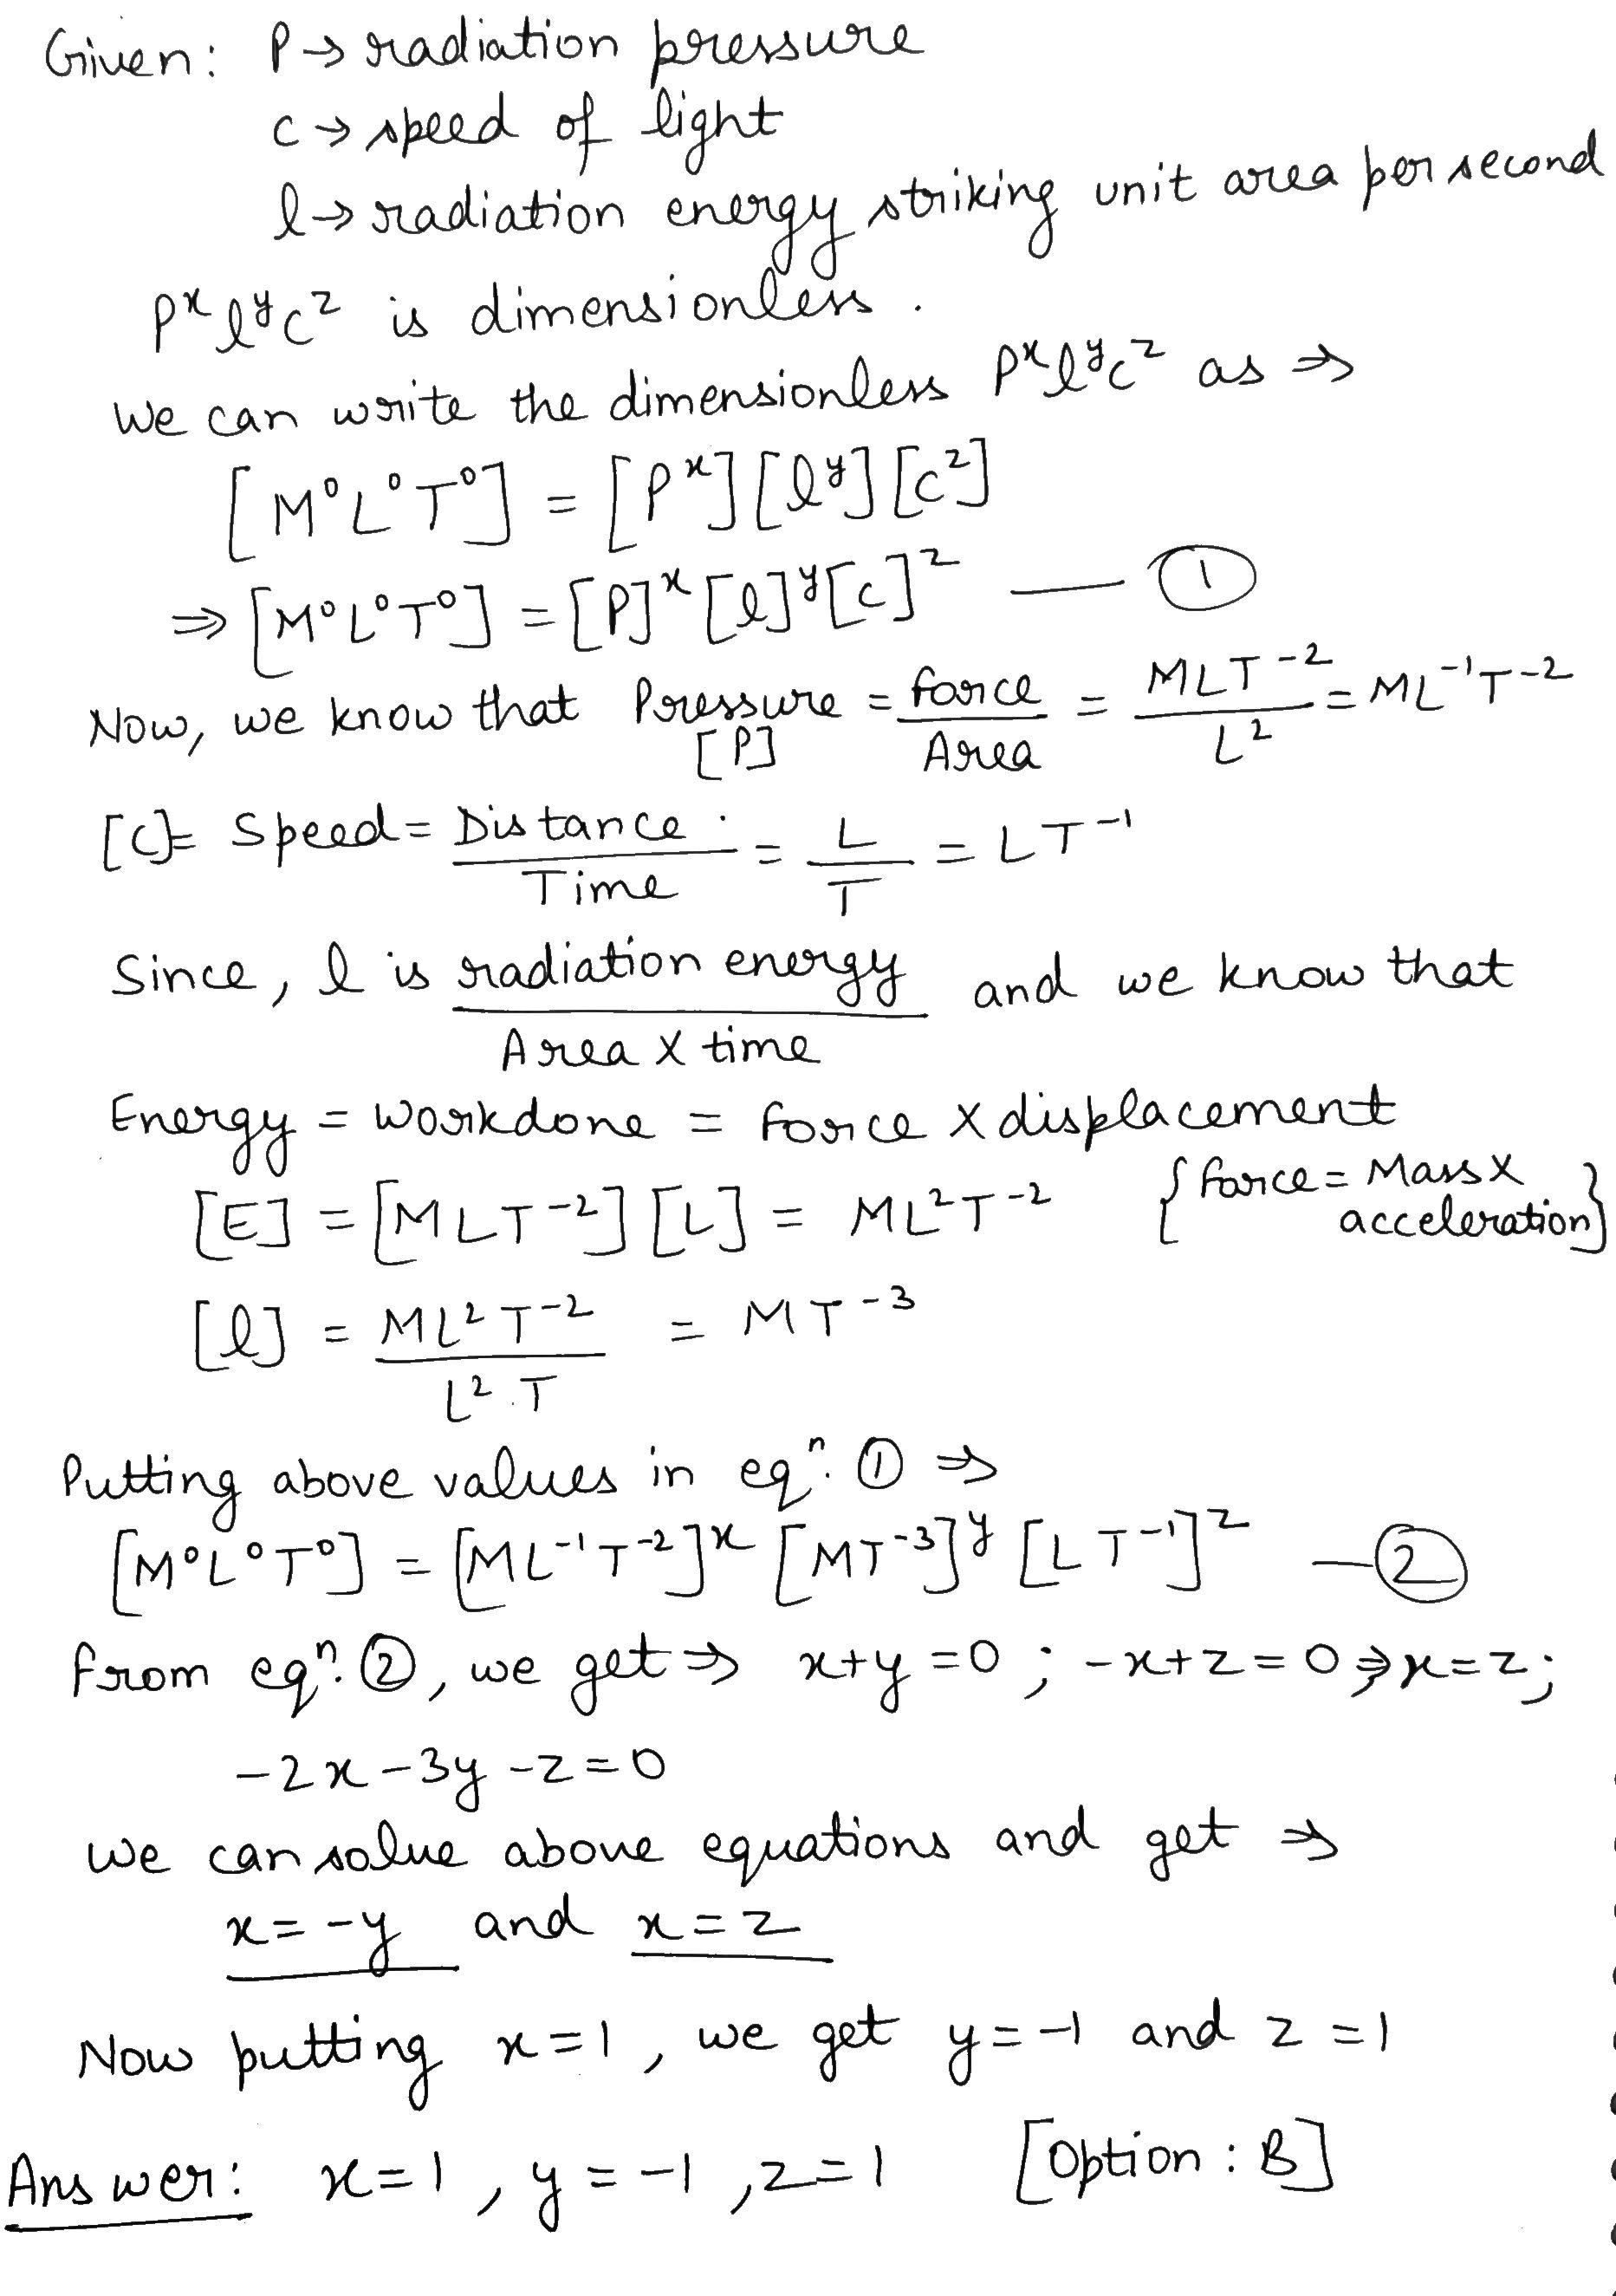 Given: P → radiation pressure
c → speed of light
l → radiation energy striking unit area per second
Pˣ lʸ cᶻ is dimensionless.
We can write the dimensionless Pˣ lʸ cᶻ as ⇒
[M⁰L⁰T⁰] = [Pˣ][lʸ][cᶻ]
⇒ [M⁰L⁰T⁰] = [P]ˣ[l]ʸ[c]ᶻ — ①
Now, we know that Pressure [P] = Force/Area = MLT⁻²/L² = ML⁻¹T⁻²
[C] = Speed = Distance/Time = L/T = LT⁻¹
Since, l is radiation energy/Area X time and we know that
Energy = Workdone = Force X displacement
[E] = [MLT⁻²][L] = ML²T⁻² {Force = Mass X acceleration}
[l] = ML²T⁻²/L².T = MT⁻³
Putting above values in eqⁿ. ① ⇒
[M⁰L⁰T⁰] = [ML⁻¹T⁻²]ˣ [MT⁻³]ʸ [LT⁻¹]ᶻ — ②
From eqⁿ. ②, we get ⇒ x+y=0 ; -x+z=0 ⇒ x=z;
-2x-3y-z=0
We can solve above equations and get ⇒
x=-y and x=z
Now putting x=1, we get y=-1 and z=1
Answer: x=1, y=-1, z=1 [Option : B]